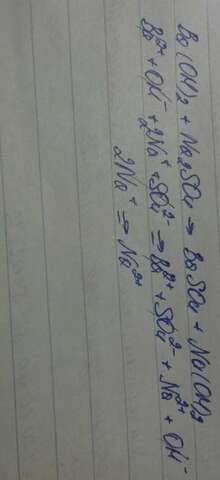 Ba(OH)₂ + Na₂SO₄ → BaSO₄ + Na(OH)₂
Ba²⁺ + OH⁻ + 2Na⁺ + SO₄²⁻ → Ba²⁺ + SO₄²⁻ + Na²⁺ + OH⁻
2Na⁺ → Na²⁺